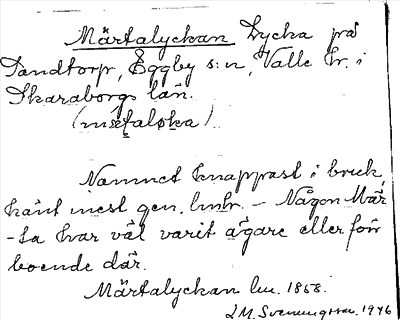 Märtalyckan Lycka på
Sandtorp, Eggby s:n, Valle hr. i
Skaraborgs län.
(mæ̣taløka)
Namnet knappast i bruk,
känt mest gen. lmhr. – Någon Mär
-ta har väl varit ägare eller för
boende där.
Märtalyckan lm. 1858.
J.M. Svenungsson. 1946